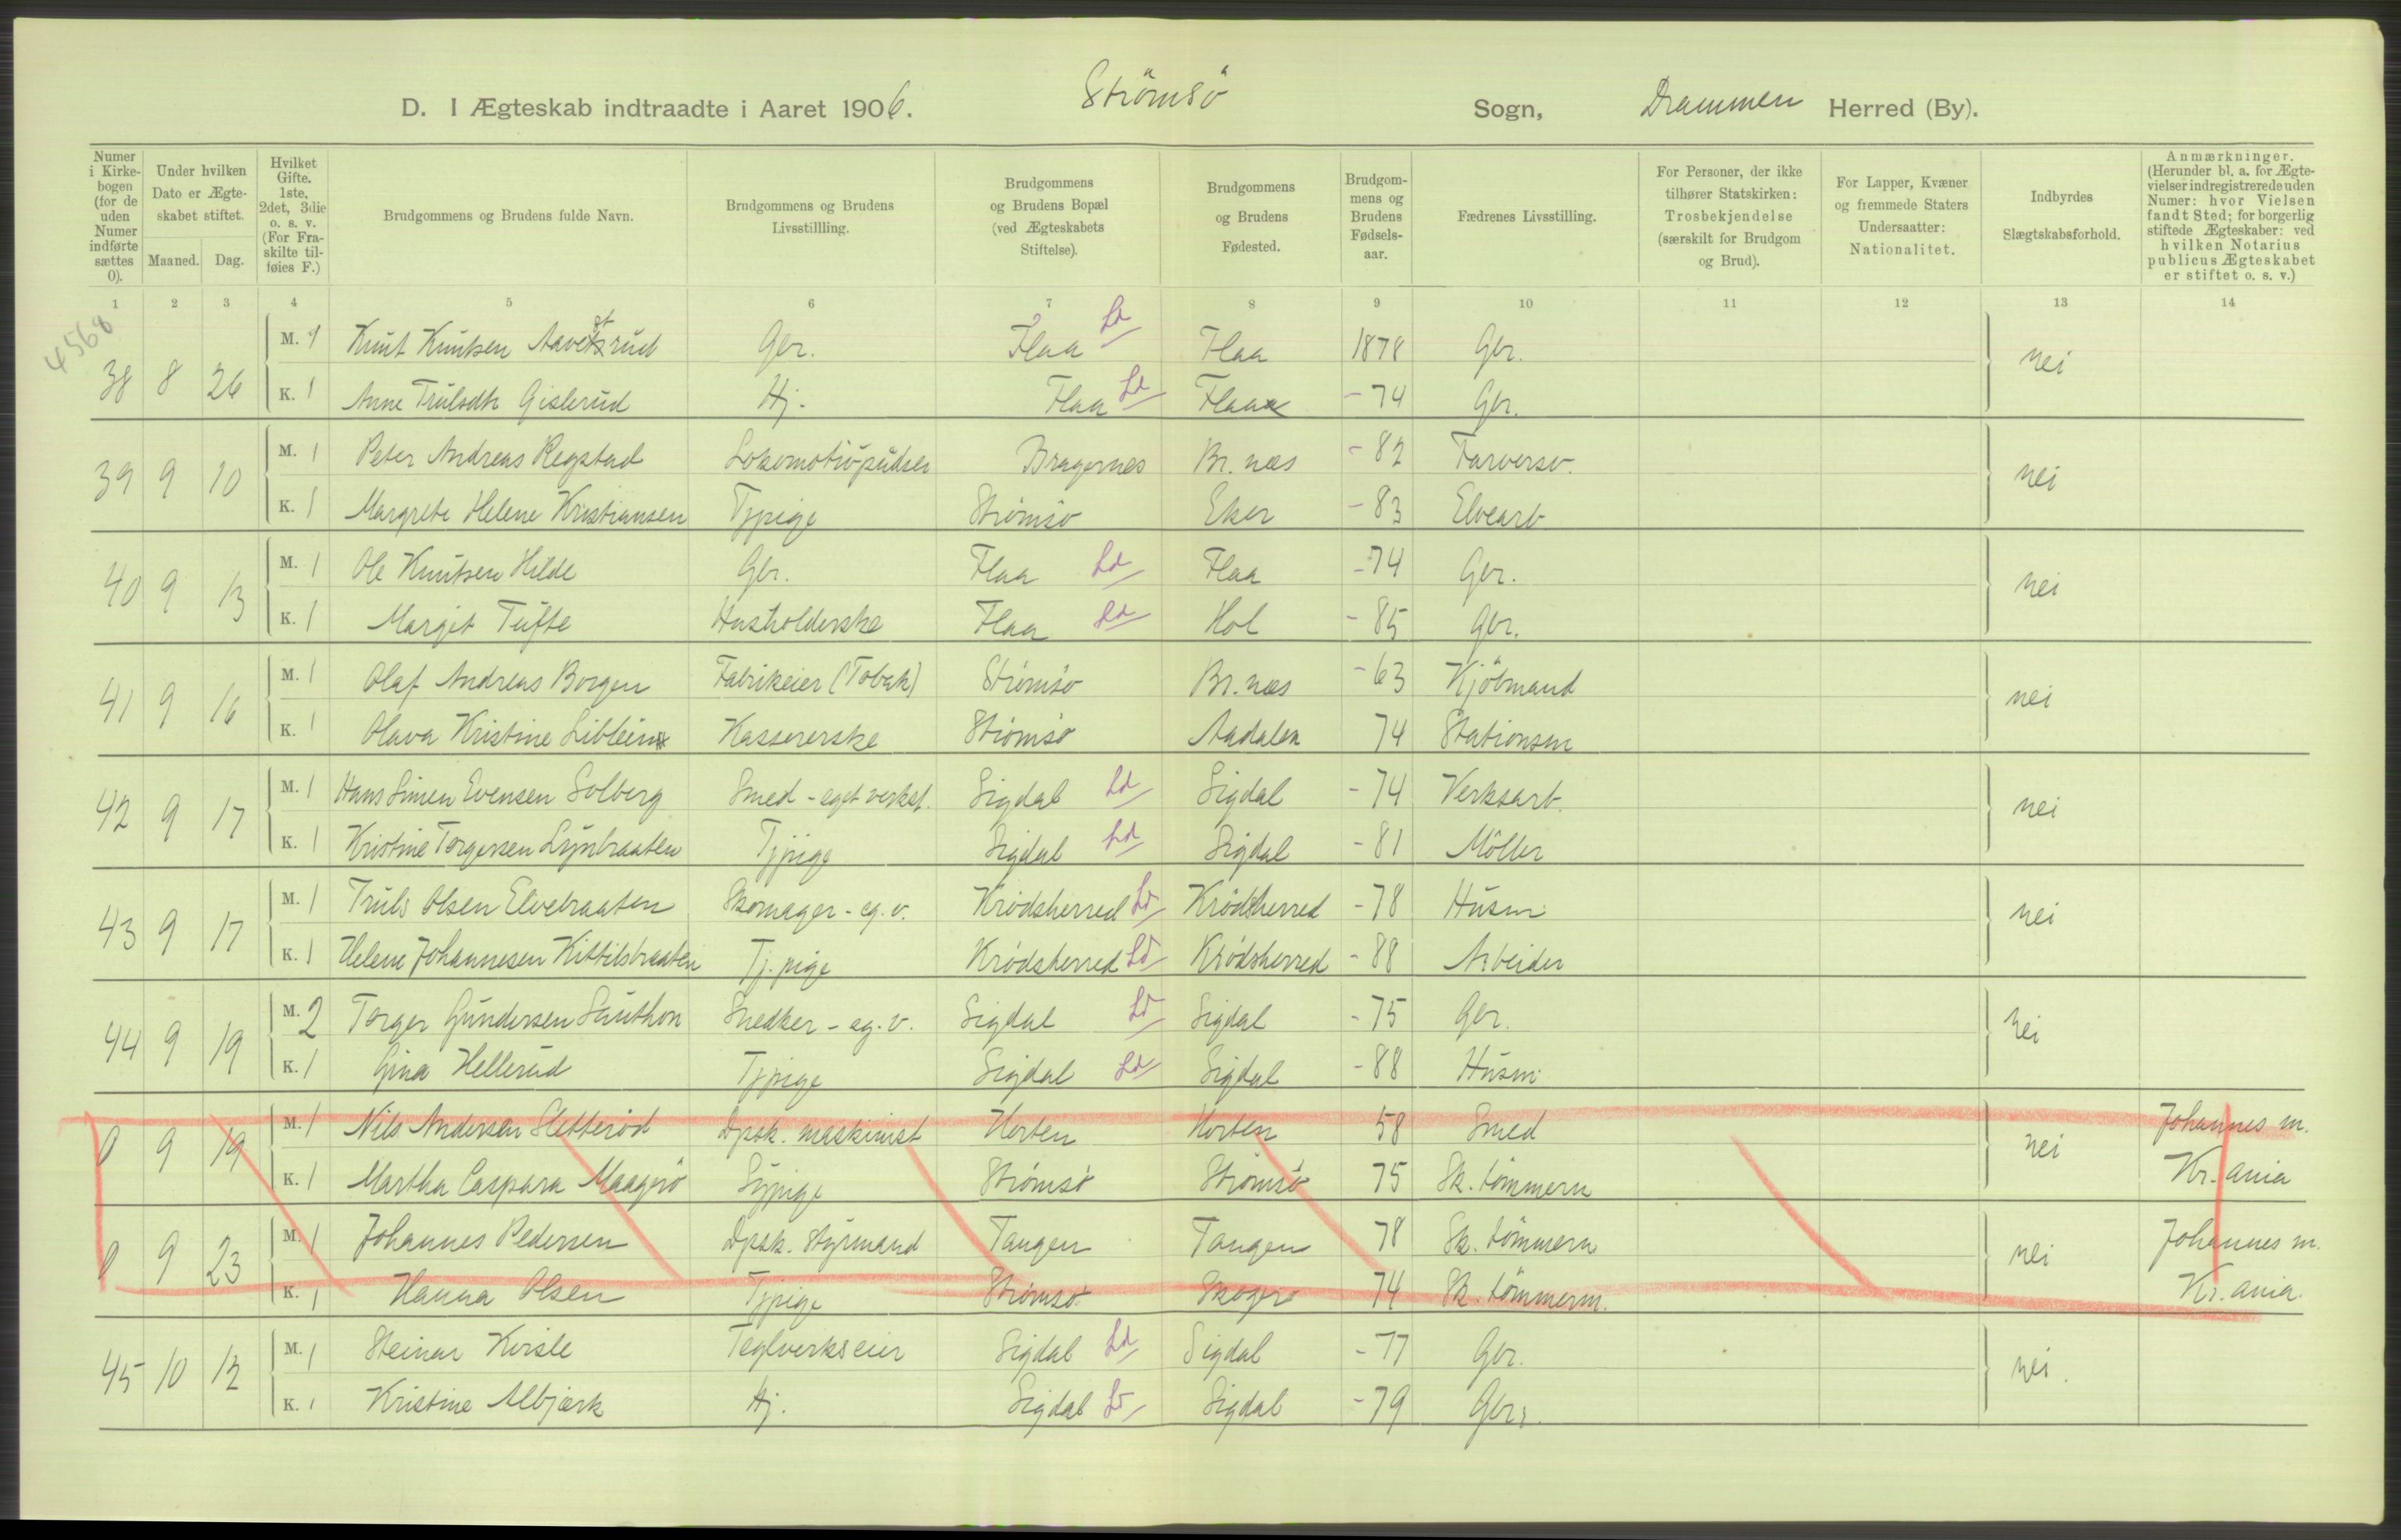 D. I Ægteskab indtraadte i Aaret 1906. Strömsö Sogn, Drammen Herred (By).
Numer i Kirke-bogen (for de uden Numer indførte sættes 0). | Under hvilken Dato er Ægte-skabet stiftet. Maaned. Dag. | Hvilket Gifte. 1ste, 2det, 3die o. s. v. (For Fra-skilte til-føies F.) | Brudgommens og Brudens fulde Navn. | Brudgommens og Brudens Livsstillling. | Brudgommens og Brudens Bopæl (ved Ægteskabets Stiftelse). | Brudgommens og Brudens Fødested. | Brudgom-mens og Brudens Fødsels-aar. | Fædrenes Livsstilling. | For Personer, der ikke tilhører Statskirken: Trosbekjendelse (særskilt for Brudgom og Brud). | For Lapper, Kvæner og fremmede Staters Undersaatter: Nationalitet. | Indbyrdes Slægtskabsforhold. | Anmærkninger. (Herunder bl. a. for Ægte-vielser indregistrerede uden Numer: hvor Vielsen fandt Sted; for borgerlig stiftede Ægteskaber: ved hvilken Notarius publicus Ægteskabet er stiftet o. s. v.)
1 2 3 4 5 6 7 8 9 10 11 12 13 14
4568
M. 1 Knut Knutsen Gbr. Flaa Ld Flaa 1878 Gbr.
38 8 26 nei
K. 1 Anne Trulsdtr Gislerud Hj. Flaa Ld Flaa - 74 Gbr.
M. 1 Peter Andreas Regstad Lokomotivpudser Bragernes Br. næs - 82 Farversv.
39 9 10 nei
K. 1 Margrete Helene Kristiansen Tjpige Strömsö Eker - 83 Elvearb
M. 1 Ole Knutsen Hilde Gbr. Flaa Ld Flaa - 74 Gbr.
40 9 13 nei
K. 1 Margit Tufte Husholderske Flaa Ld Hol - 85 Gbr.
M. 1 Olaf Andreas Borgen Fabrikeier (Tobak) Strömsö Br. næs - 63 Kjöbmand
41 9 16 nei
K. 1 Olava Kristine Liblein Kassererske Strömsö Aadalen 74 Stationsm
M. 1 Hans Simen Evensen Solberg Smed - eget verkst. Sigdal Ld Sigdal - 74 Verksarb.
42 9 17 nei
K. 1 Kristine Torgersen Lynbraaten Tjpige Sigdal Ld Sigdal - 81 Möller
M. 1 Truls Olsen Elvebraaten Skomager - eg. v. Krödsherred Ld Krödsherred - 78 Husm
43 9 17 nei
K. 1 Helene Johannesen Kittilsbraaten Tj. pige Krödsherred Ld Krödsherred - 88 Arbeider
M. 2 Torger Gundersen Snedker - eg. v. Sigdal Ld Sigdal - 75 Gbr.
44 9 19 nei
K. 1 Gina Hellerud Tjpige Sigdal Ld Sigdal - 88 Husm
M. 1 Nils Andersen Sletteröd Dpsk. maskinist Horten Horten 58 Smed Johannes m.
0 9 19 nei
K. 1 Martha Caspara Maagerö Sypige Strömsö Strömsö 75 Sk. tömmerm Kr. ania
M. 1 Johannes Pedersen Dpsk. Styrmand Tangen Tangen 78 Sk. tömmerm Johannes m.
0 9 23 nei
K. 1 Hanna Olsen Tjpige Strömsö Skoger 74 Sk. tömmerm. Kr. ania.
M. 1 Steinar Kvisle Teglverkseier Sigdal Ld Sigdal - 77 Gbr.
45 10 12 nei.
K. 1 Kristine Albjerk Hj. Sigdal Ld Sigdal - 79 Gbr.